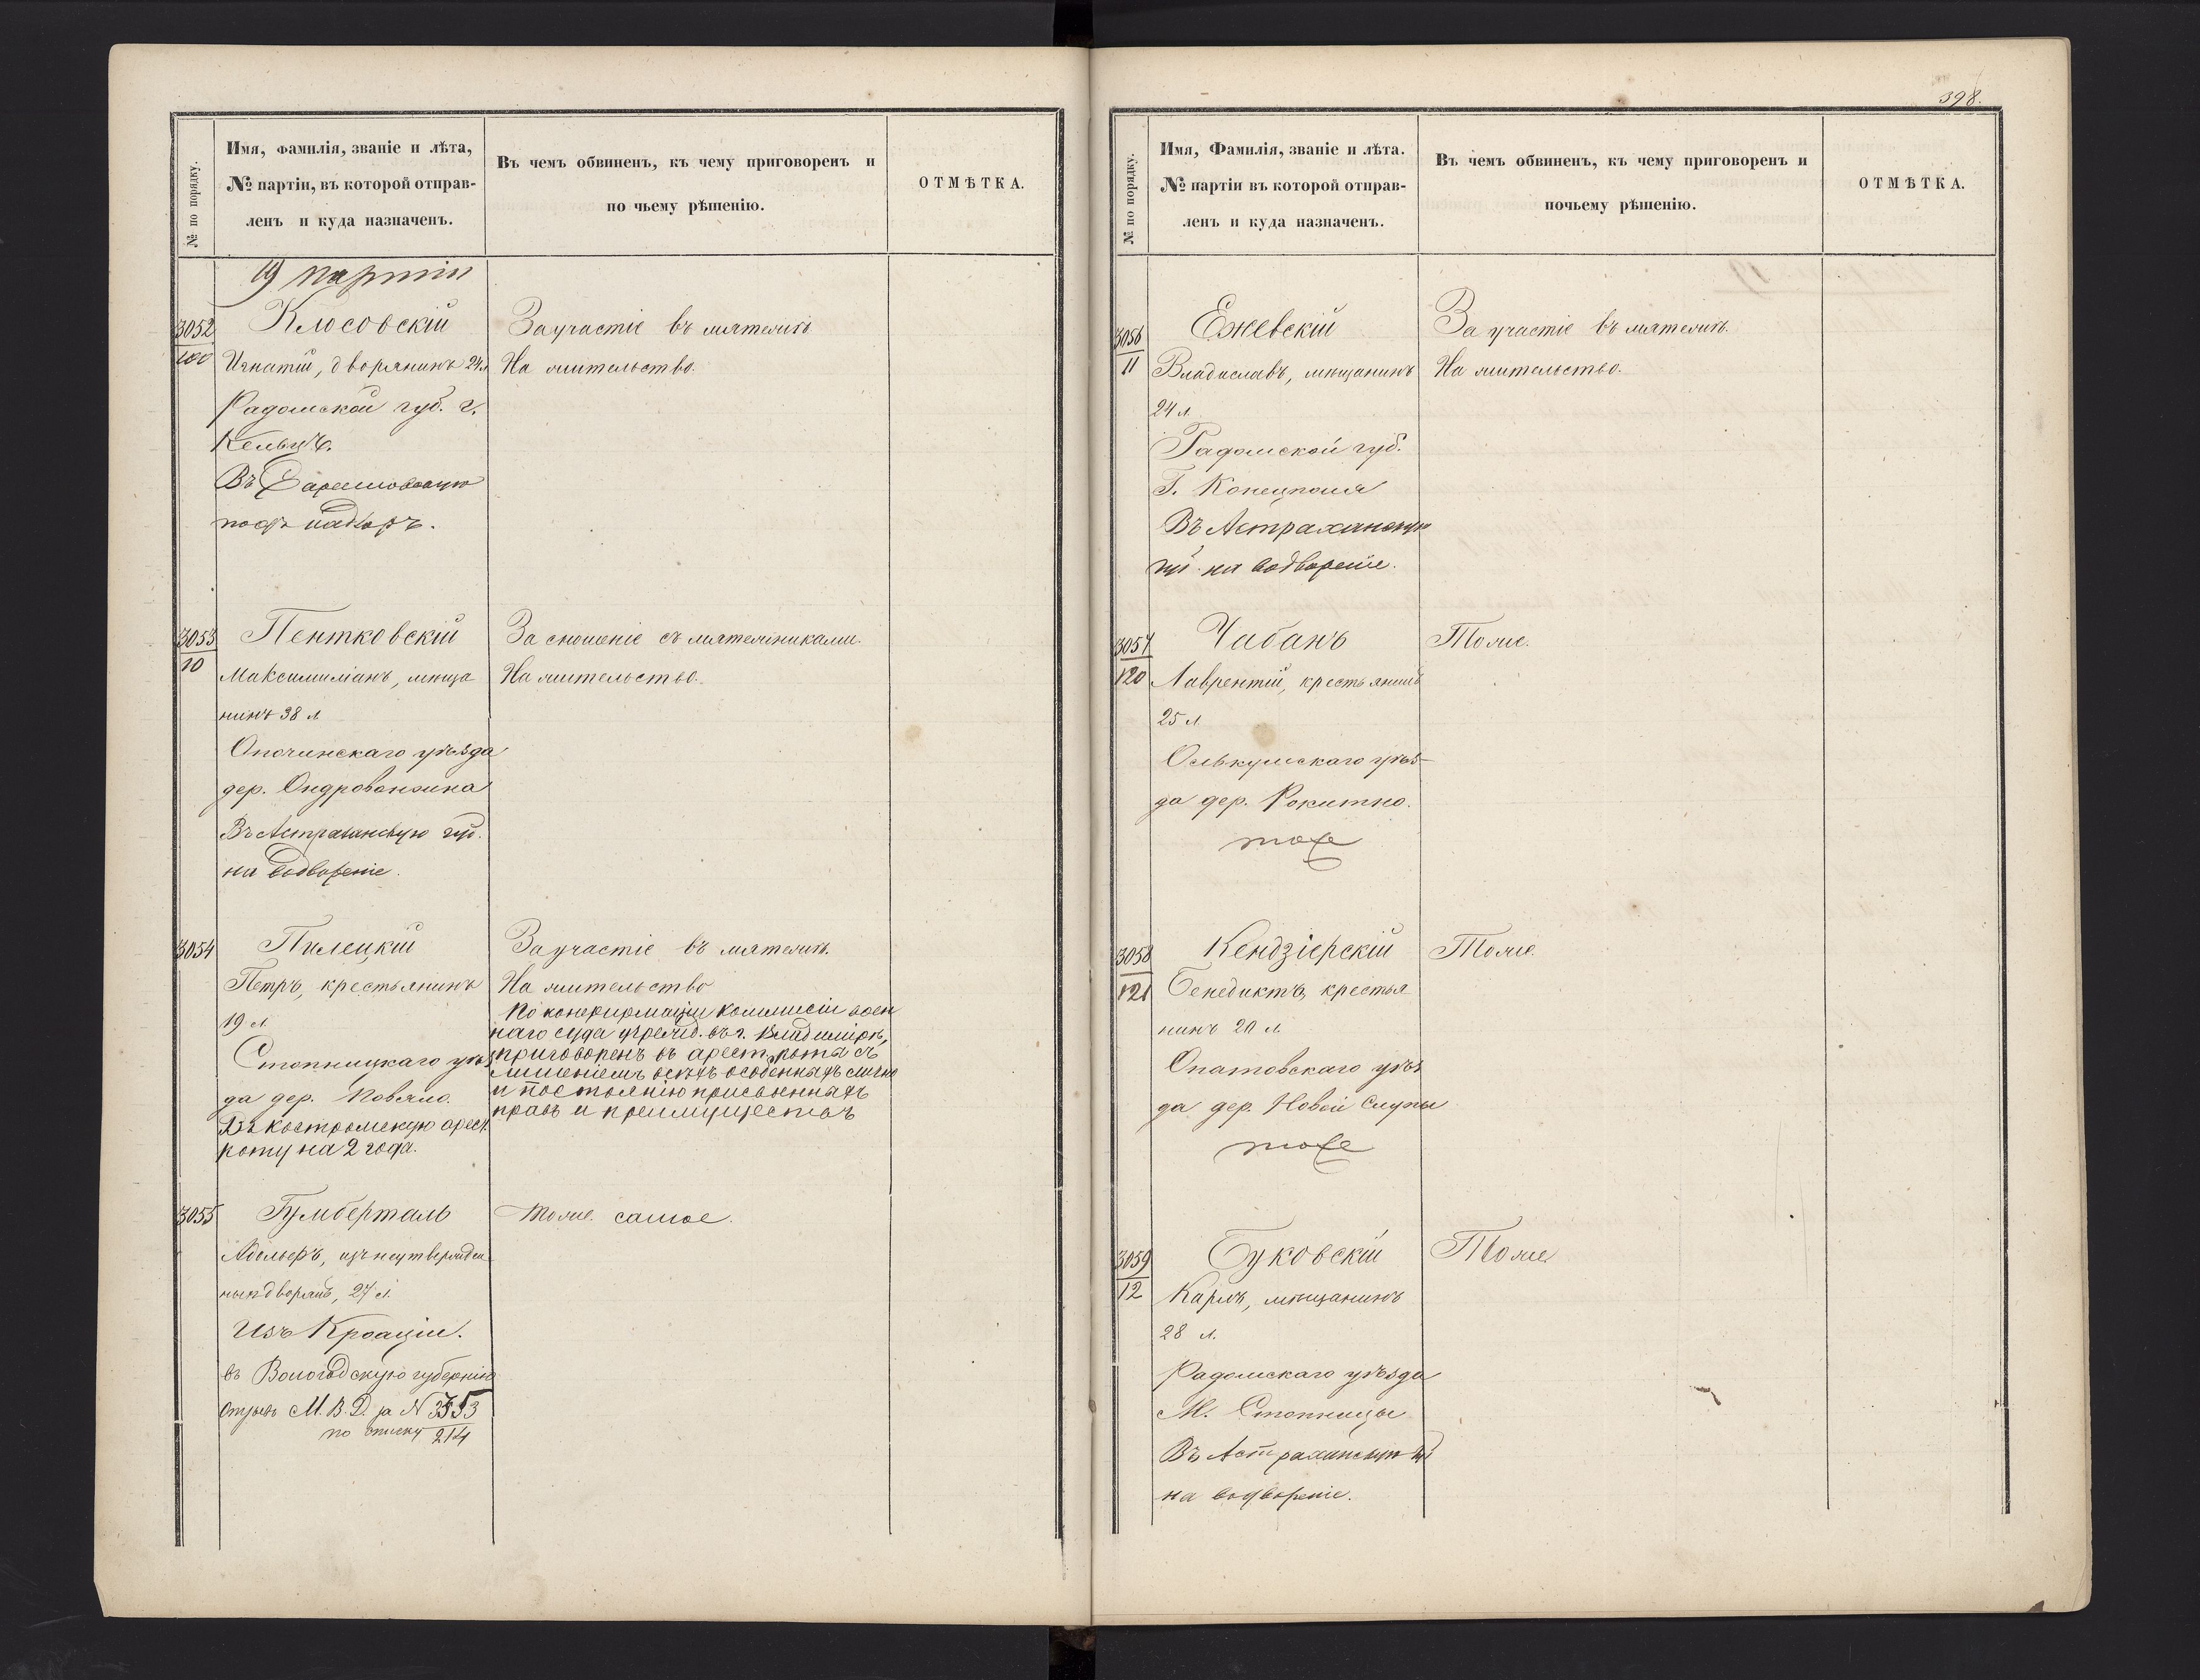 № по порядку.
Имя, Фамилія, званіе и лѣта,
№ партіи, въ которой отправ-
ленъ и куда назначенъ.
Въ чемъ обвиненъ, къ чему приговоренъ и
по чьему рѣшенію.
ОТМѢТКА.
19 партіи
3052
100
Клосовскій
Игнатій, дворянинъ 24 л
Радомской губ. г.
Кельцъ.
Въ
подъ надзоръ.
За участіе въ мятежѣ
На жительство.
3053
10
Пентковскій
Максимиліанъ, мѣща
нинъ 38 л
Опочинскаго уѣзда
дер.
Въ Астраханскую губ.
на водвореніе.
За сношеніе съ мятежниками.
На жительство.
3054
Пилецкій
Петръ, крестьянинъ
19 л
Стопницкаго уѣз
да дер.
Въ Костромскую арест.
роту на 2 года.
За участіе въ мятежѣ.
На жительство
По конфирмаціи коммисіи воен
наго суда учрежд. въ г. Владимірѣ,
приговоренъ въ арест. роты съ
лишеніемъ всѣхъ особенныхъ лично
и по состоянію присвоенныхъ
правъ и преимуществъ
3055
Гумберталь
изъ неутвержден
ныхъ дворянъ, 27 л.
Изъ Кроаціи.
въ Вологодскую губернію
М. В. Д. за N 3553
по списку 214
Тоже самое.
398.
№ по порядку.
Имя, Фамилія, званіе и лѣта.
№ партіи въ которой отправ-
ленъ и куда назначенъ.
Въ чемъ обвиненъ, къ чему приговоренъ и
почьему рѣшенію.
ОТМѢТКА.
3056
11
Ежевскій
Владиславъ, мѣщанинъ
24 л.
Радомской губ.
Г. Конецполя
Въ Астраханскую
губ. на водвореніе.
За участіе въ мятежѣ.
На жительство.
3057
120
Чабанъ
Лаврентій, крестьянинъ
25 л.
Олькушскаго уѣз-
да дер. Рокитно.
тоже
Тоже.
3058
121
Кендзіерскій
Бенедиктъ, крестья
нинъ 20 л.
Опатовскаго уѣз
да дер. Новой Слупы
тоже
Тоже.
3059
12
Буковскій
Карлъ, мѣщанинъ
28 л.
Радомскаго уѣзда
М. Стопницы
Въ Астраханскую губ
на водвореніе.
Тоже